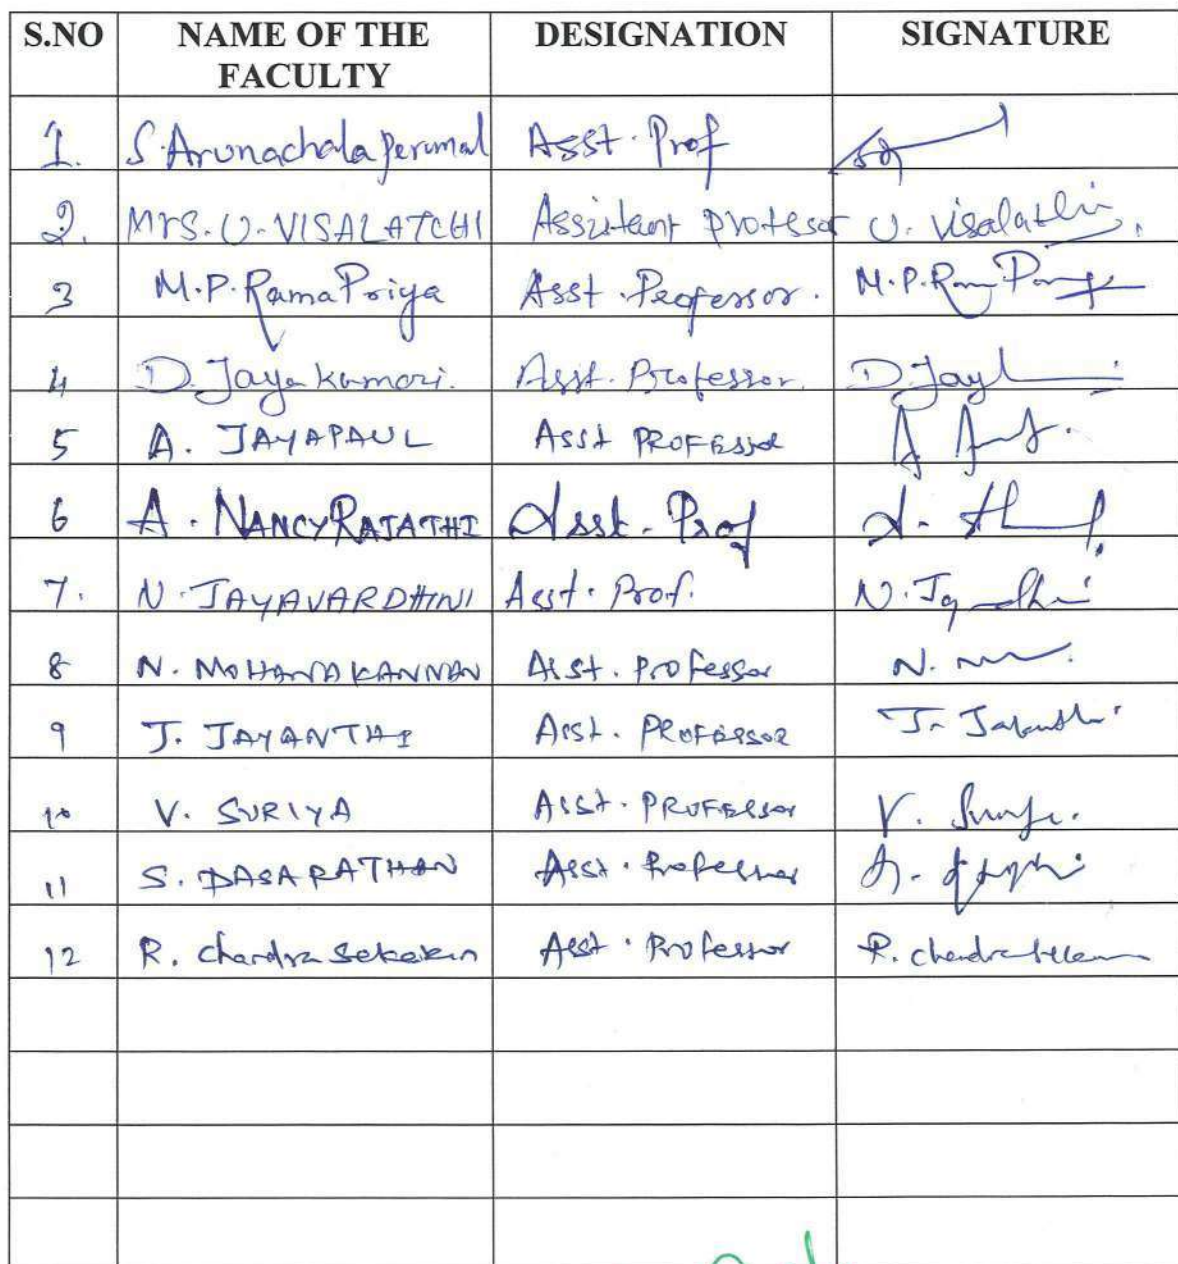 S.NO NAME OF THE FACULTY DESIGNATION SIGNATURE
1. S. Arunachala Perumal Asst. Prof
2. Mrs. U. VISALATCHI Assistant professor U. Visalatchi.
3 M.P. Rama Priya Asst. Professor. M.P. Rama
4 D. Jaya Kumari. Asst. Professor. D. Jay
5 A. JAYAPAUL ASST PROFESSOR
6 A. NANCY RAJATHI Asst. Prof
7. N. JAYAVARDHINI Asst. Prof. N.
8 N. MOHANA KANNAN Asst. Professor N.
9 J. JAYANTHI Asst. PROFESSOR J. Jayanthi
10 V. SURIYA Asst. PROFESSOR V.
11 S. DASARATHAN Asst. Professor
12 R. Chandra Sekaran Asst. Professor R. Chandrasekaran